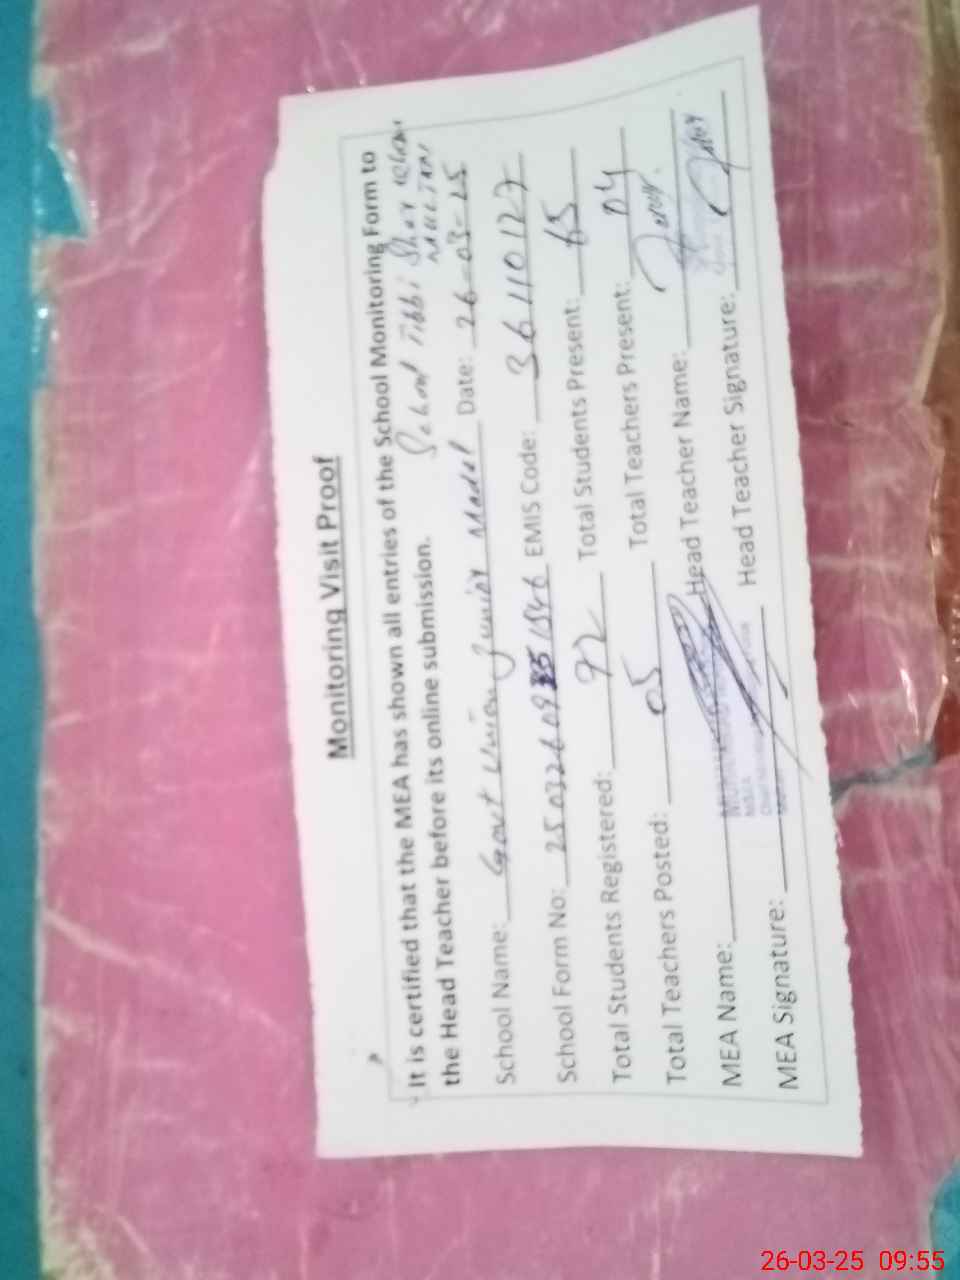 Monitoring Visit Proof
It is certified that the MEA has shown all entries of the School Monitoring Form to
the Head Teacher before its online submission.
School Tibbi Sher
MULTAN
School Name: Govt Junior Model Date: 26-03-25
School Form No: 2503260951546 EMIS Code: 36110127
Total Students Registered: 92 Total Students Present: 65
Total Teachers Posted: 05 Total Teachers Present: 04
MEA Name: Head Teacher Name:
MEA Signature: Head Teacher Signature:
26-03-25 09:55